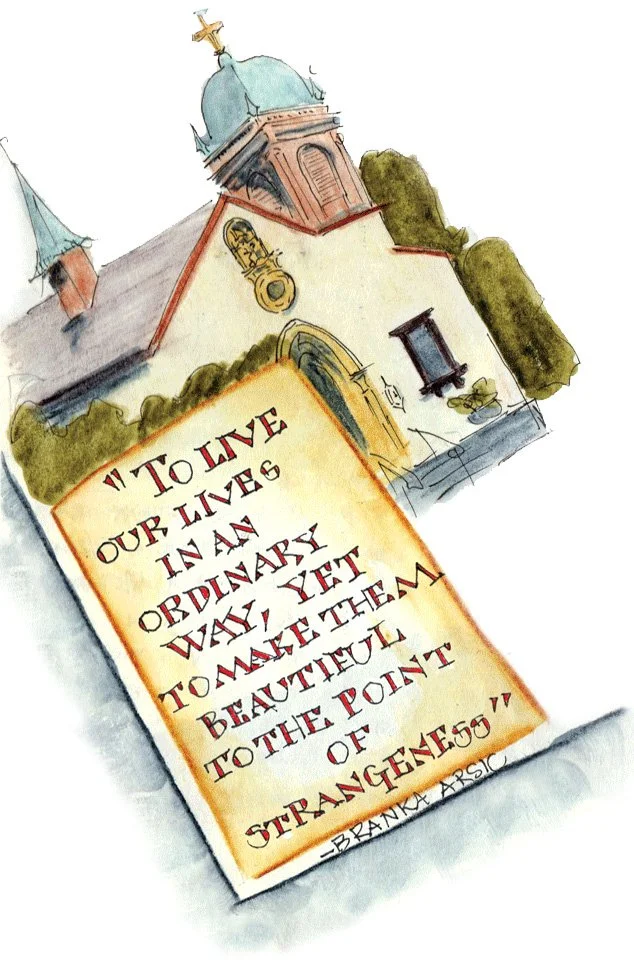 "TO LIVE
OUR LIVES
IN AN
ORDINARY
WAY, YET
TO MAKE THEM
BEAUTIFUL
TO THE POINT
OF
STRANGENESS"
-BRANKA ARSIC